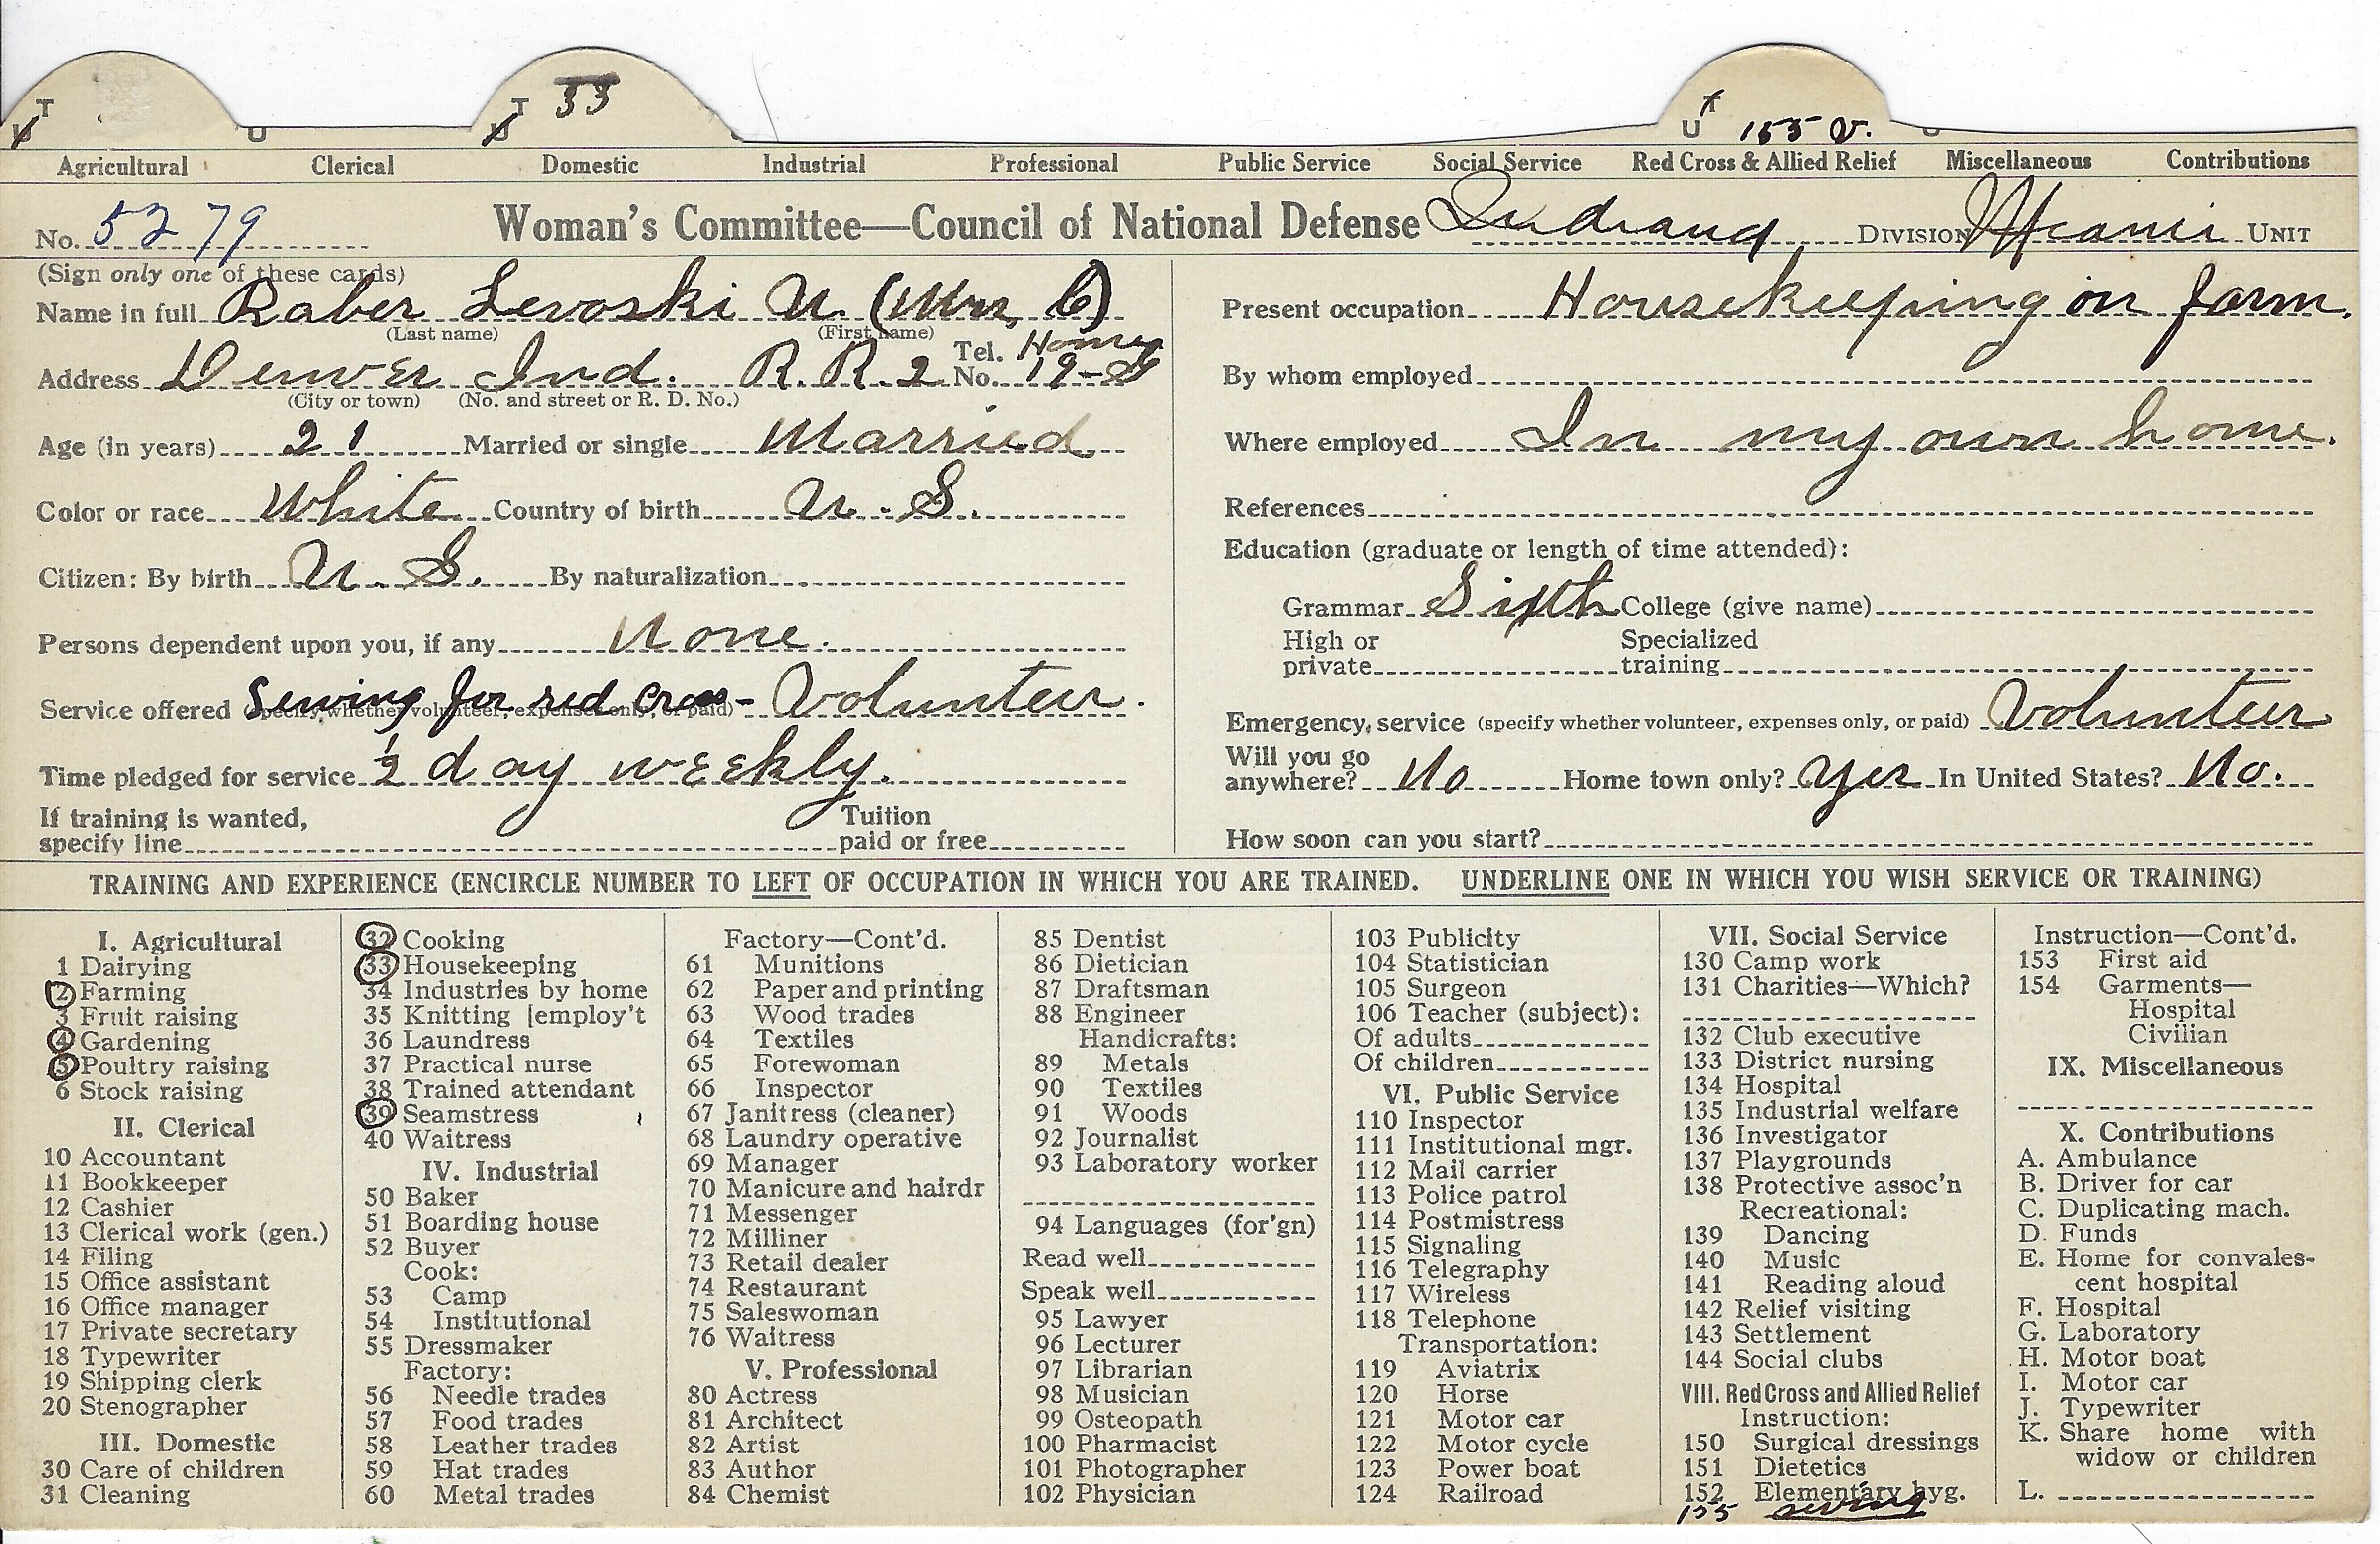 T U T U 33 U T 155 V.
Agricultural Clerical Domestic Industrial Professional Public Service Social Service Red Cross & Allied Relief Miscellaneous Contributions
No. 5279 Woman's Committee—Council of National Defense Indiana DIVISION Miami UNIT
(Sign only one of these cards)
Name in full Raber Levoski N. (Mrs. C)
(Last name) (First name)
Address Denver Ind. R.R. 2 Tel. No. Home 19-
(City or town) (No. and street or R. D. No.)
Age (in years) 21 Married or single Married
Color or race White Country of birth U. S.
Citizen: By birth U. S. By naturalization
Persons dependent upon you, if any None.
Service offered Sewing for red cross - Volunteer.
(specify whether volunteer, expenses only, or paid)
Time pledged for service 1/2 day weekly.
If training is wanted, specify line Tuition paid or free
Present occupation Housekeeping on farm.
By whom employed
Where employed In my own home.
References
Education (graduate or length of time attended):
Grammar Sixth College (give name)
High or private Specialized training
Emergency service (specify whether volunteer, expenses only, or paid) Volunteer
Will you go anywhere? No Home town only? Yes In United States? No.
How soon can you start?
TRAINING AND EXPERIENCE (ENCIRCLE NUMBER TO LEFT OF OCCUPATION IN WHICH YOU ARE TRAINED. UNDERLINE ONE IN WHICH YOU WISH SERVICE OR TRAINING)
I. Agricultural
1 Dairying
2 Farming
3 Fruit raising
4 Gardening
5 Poultry raising
6 Stock raising
II. Clerical
10 Accountant
11 Bookkeeper
12 Cashier
13 Clerical work (gen.)
14 Filing
15 Office assistant
16 Office manager
17 Private secretary
18 Typewriter
19 Shipping clerk
20 Stenographer
III. Domestic
30 Care of children
31 Cleaning
32 Cooking
33 Housekeeping
34 Industries by home
35 Knitting [employ't
36 Laundress
37 Practical nurse
38 Trained attendant
39 Seamstress
40 Waitress
IV. Industrial
50 Baker
51 Boarding house
52 Buyer
Cook:
53 Camp
54 Institutional
55 Dressmaker
Factory:
56 Needle trades
57 Food trades
58 Leather trades
59 Hat trades
60 Metal trades
Factory—Cont'd.
61 Munitions
62 Paper and printing
63 Wood trades
64 Textiles
65 Forewoman
66 Inspector
67 Janitress (cleaner)
68 Laundry operative
69 Manager
70 Manicure and hairdr
71 Messenger
72 Milliner
73 Retail dealer
74 Restaurant
75 Saleswoman
76 Waitress
V. Professional
80 Actress
81 Architect
82 Artist
83 Author
84 Chemist
85 Dentist
86 Dietician
87 Draftsman
88 Engineer
Handicrafts:
89 Metals
90 Textiles
91 Woods
92 Journalist
93 Laboratory worker
94 Languages (for'gn)
Read well
Speak well
95 Lawyer
96 Lecturer
97 Librarian
98 Musician
99 Osteopath
100 Pharmacist
101 Photographer
102 Physician
103 Publicity
104 Statistician
105 Surgeon
106 Teacher (subject):
Of adults
Of children
VI. Public Service
110 Inspector
111 Institutional mgr.
112 Mail carrier
113 Police patrol
114 Postmistress
115 Signaling
116 Telegraphy
117 Wireless
118 Telephone
Transportation:
119 Aviatrix
120 Horse
121 Motor car
122 Motor cycle
123 Power boat
124 Railroad
VII. Social Service
130 Camp work
131 Charities—Which?
132 Club executive
133 District nursing
134 Hospital
135 Industrial welfare
136 Investigator
137 Playgrounds
138 Protective assoc'n
Recreational:
139 Dancing
140 Music
141 Reading aloud
142 Relief visiting
143 Settlement
144 Social clubs
VIII. Red Cross and Allied Relief
Instruction:
150 Surgical dressings
151 Dietetics
152 Elementary hyg.
155 sewing
Instruction—Cont'd.
153 First aid
154 Garments—
Hospital
Civilian
IX. Miscellaneous
X. Contributions
A. Ambulance
B. Driver for car
C. Duplicating mach.
D. Funds
E. Home for convales-
cent hospital
F. Hospital
G. Laboratory
H. Motor boat
I. Motor car
J. Typewriter
K. Share home with
widow or children
L.